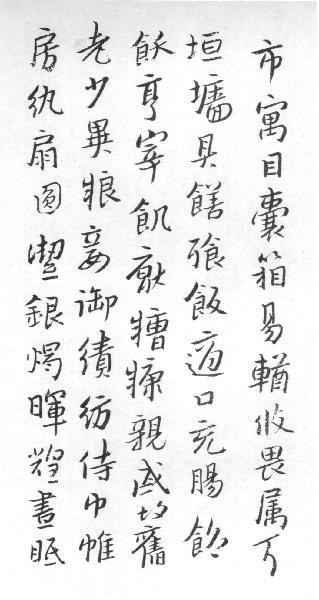 市寓目囊箱易輶攸畏属耳
垣墻具饍飡飯適口充腸飽
飫亨宰飢猒糟糠親戚故舊
老少異粮妾御績紡侍巾帷
房紈扇圓潔銀燭暐煌晝眠